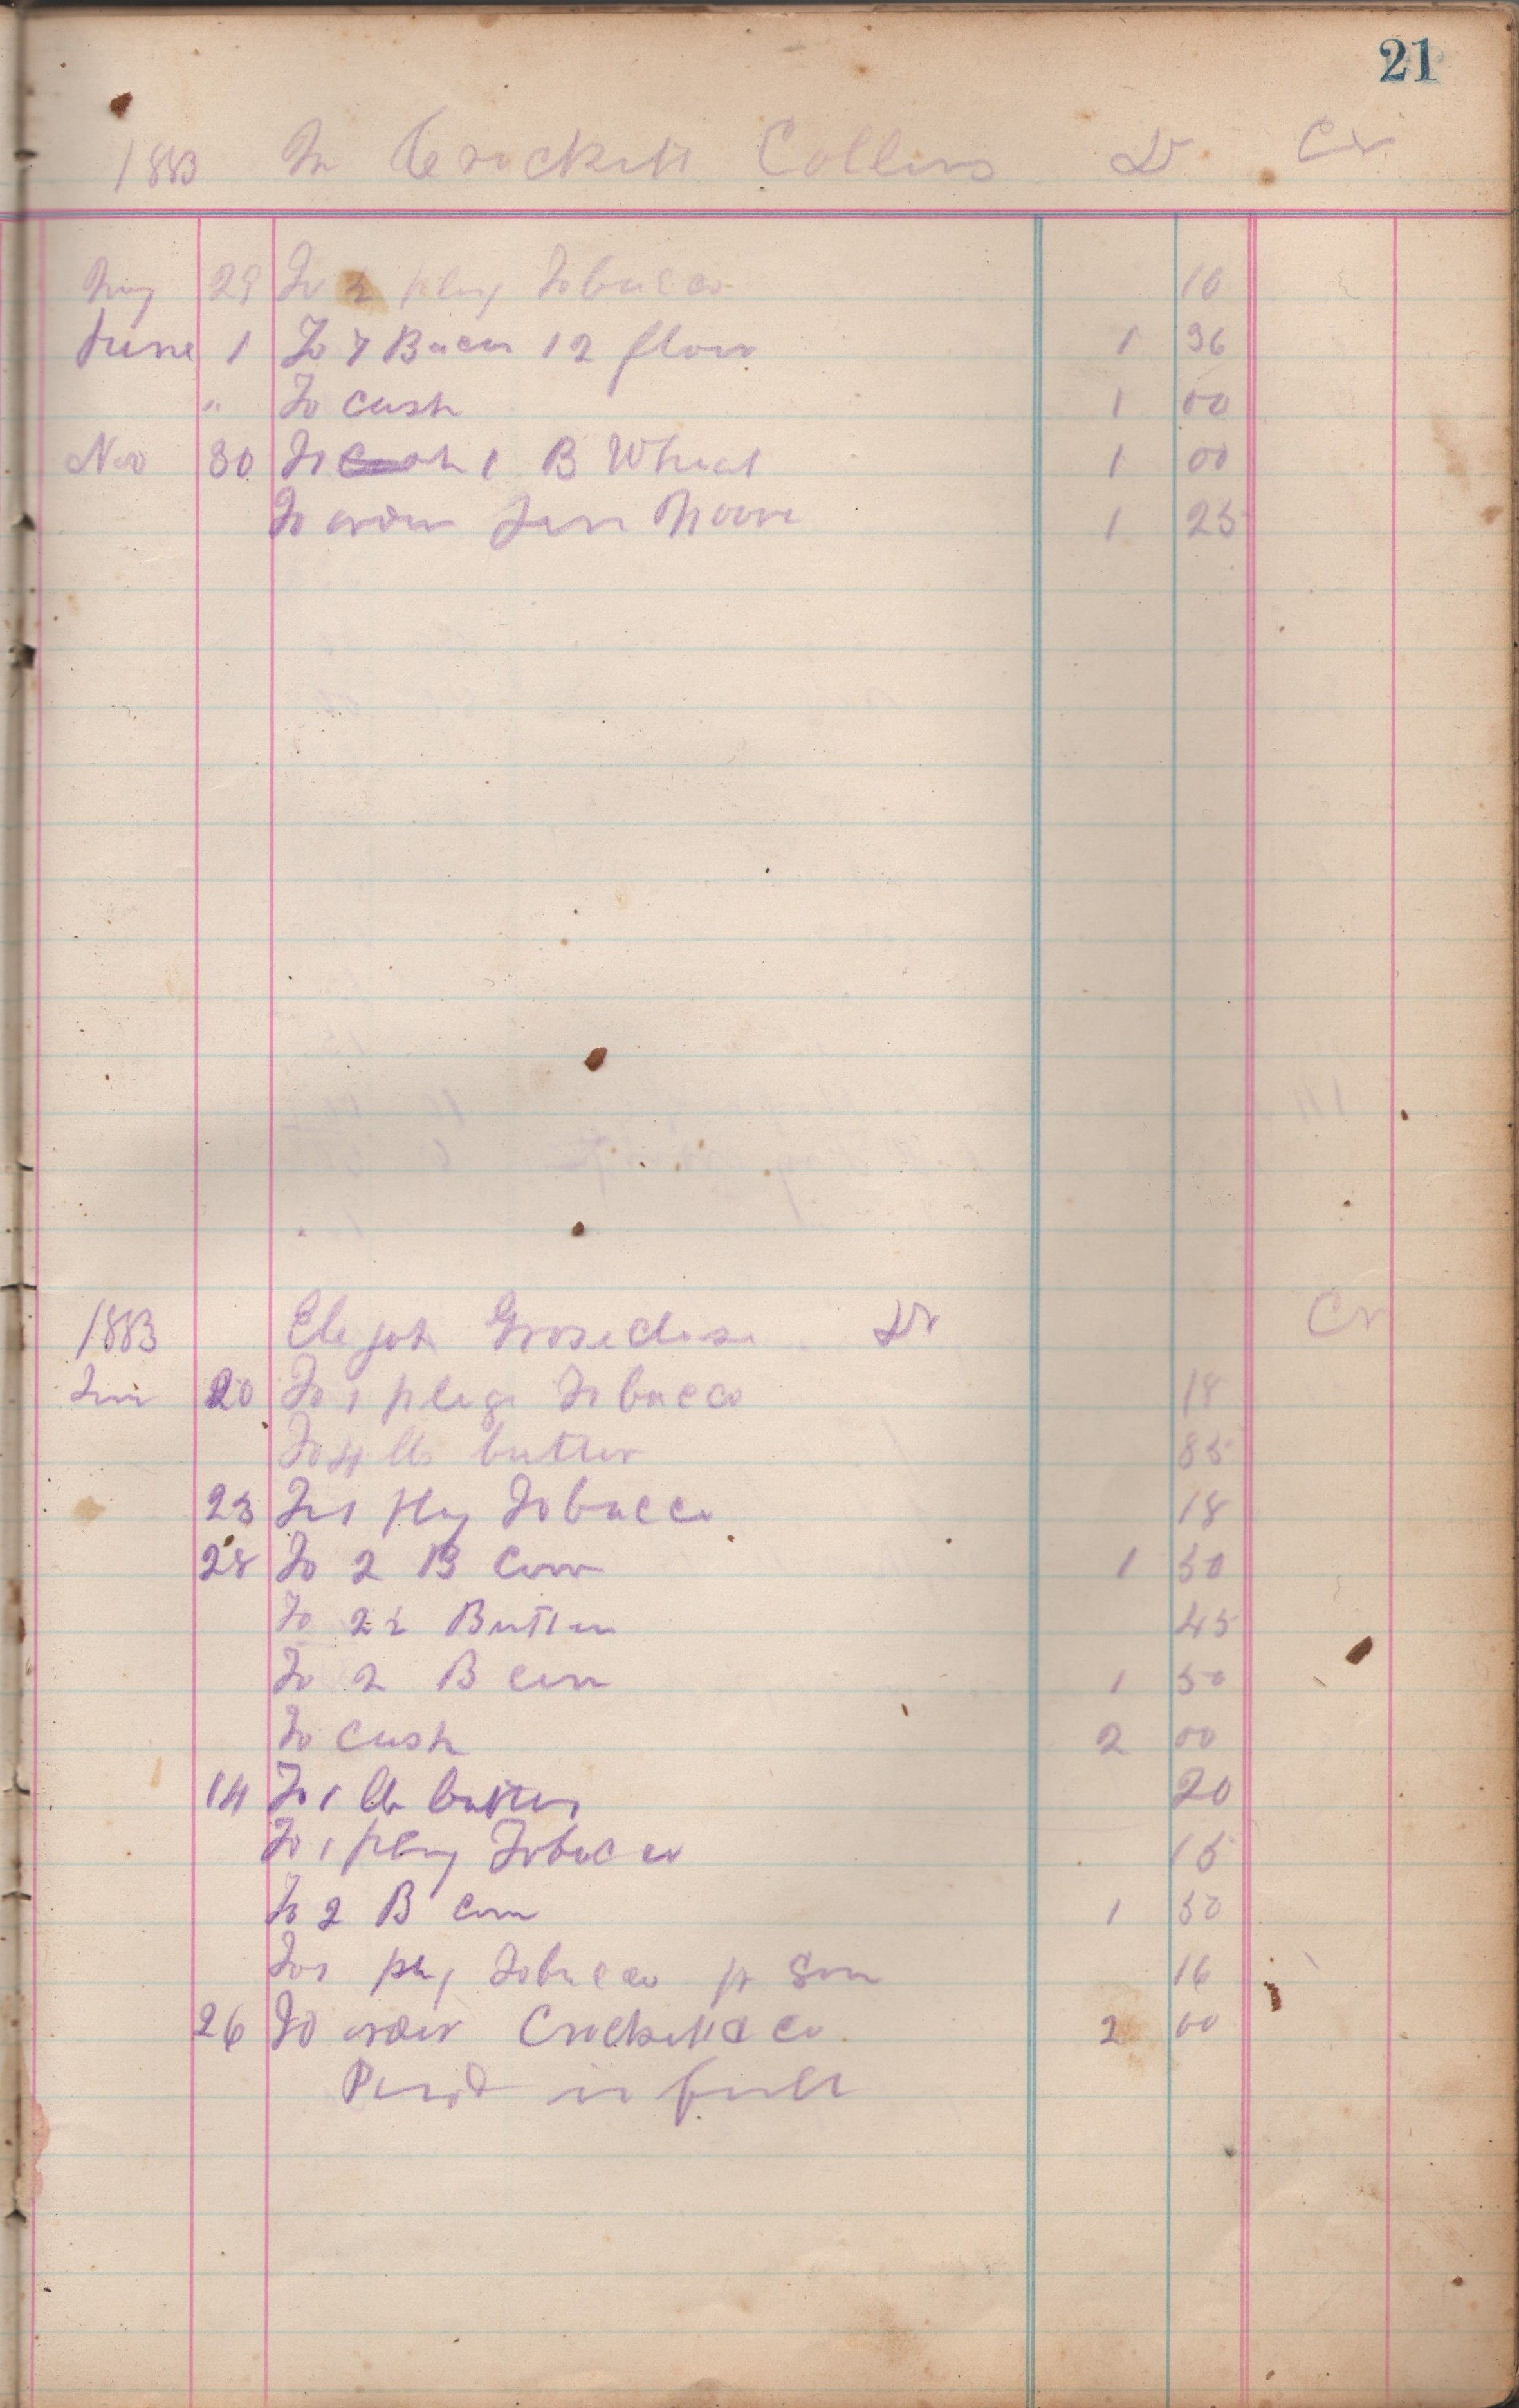 21
1883 Crockett Collins Dr Cr
May 29 To 1/2 plug Tobacco 10
June 1 To 7 Bacon 12 flour 1 96
" To cash 1 00
Nov 30 To 1 B Wheat 1 00
To order Moore 1 25
1883 Elijah Groseclose Dr Cr
20 To 1 plug Tobacco 18
To 4 lb butter 85
23 To 1 plug Tobacco 18
28 To 2 B Corn 1 50
To 2 1/2 Butter 45
To 2 B corn 1 50
To cash 2 00
14 To 1 lb butter 20
To 1 plug Tobacco 15
To 2 B corn 1 50
To 1 plug Tobacco p Son 16
26 To order Crockett & Co 2 00
Paid in full